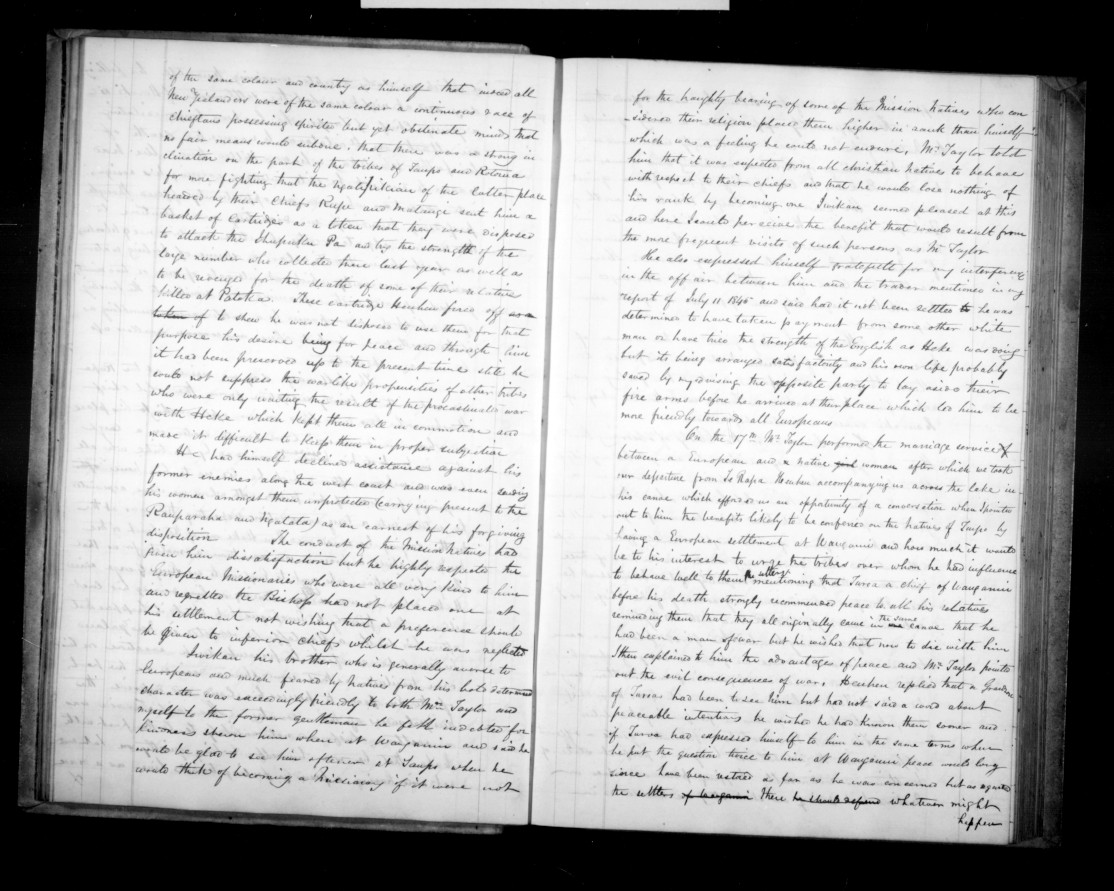 of the same colour and country as himself that indeed all
New Zealanders were of the same colour a continuous race of
chieftans possessing spirited but yet obstinate minds that
no fair means would subdue; that there was a strong in
clination on the part of the tribes of Taupo and Rotorua
for more fighting that the of the latter place
headed by their Chiefs and sent him a
basket of Cartridges as a token that they were disposed
to attack the Pa and by the strength of the
large number who collected there last year as well as
to be revenged for the death of some of their relative
killed at Patoka. These cartridge Heuheu fired off as a
token of to shew he was not disposed to use them for that
purpose his desire being for peace and through him
it had been preserved up to the present time still he
could not suppress the warlike propensities of other tribes
who were only waiting the result of the war
with Heke which kept them all in commotion and
made it difficult to keep them in proper subjection
He had himself declined assistance against his
former enemies along the west coast and was even sending
his woman amongst them unprotected (carrying present to the
Rauparaha and Ngatata) as an earnest of his forgiving
disposition The conduct of the Mission natives had
given him dissatisfaction but he highly respected the
European Missionaries who were all very kind to him
and regretted the Bishop had not placed one at
his settlement not wishing that a preference should
be given to inferior chiefs whilst he was neglected
Iwikau his brother who is generally averse to
Europeans and much feared by Natives from his bold determined
character was exceedingly friendly to both Mr. Taylor and
myself to the former gentleman he felt indebted for
kindness shown him when at Wanganui and said he
would be glad to see him oftener at Taupo when he
would think of becoming a Missionary if it were not
for the haughty bearing of some of the Mission Natives who con
-sidered their religion placed them higher in rank than himself
which was a feeling he could not endure. Mr. Taylor told
him that it was expected from all christian natives to behave
with respect to their chiefs and that he would lose nothing of
his rank by becoming one Iwikau seemed pleased at this
and here I could perceive the benefit that would result from
the more frequent visits of such persons as Mr Taylor
He also expressed himself gratefull for my interference
in the affair between him and the trader mentioned in my
report of July 11 1845 and said had it not been settled to he was
determined to have taken payment from some other white
man or have tried the strength of the English as Heke was doing
but its being arranged satisfactorily and his own life probably
saved by my advising the opposite party to lay aside their
fire arms before he arrived at their place which led him to be
more friendly towards all Europeans
On the 17th Mr. Taylor performed the marriage service of
between a European and a native girl woman after which we took
our departure from Te Rapa Heuheu accompanying us across the lake in
his canoe which afforded us an opportunity of a conversation when I pointed
out to him the benefits likely to be conferred on the natives of Taupo by
having a European settlement at Wanganui and how much it would
be to his interest to urge the tribes over whom he had influence
to behave well to them mentioning that Turoa a chief of Wanganui
before his death strongly recommended peace to all his relatives
reminding them that they all originally came in the same one canoe that he
had been a man of war but he wished that now to die with him
I then explained to him the advantages of peace and Mr Taylor pointed
out the evil consequences of war. Heuheu replied that a Grandson
of Turoas had been to see him but had not said a word about
peaceable intentions he wished he had known them sooner and
if Turoa had expressed himself to him in the same terms when
he put the question thrice to him at Wanganui peace would long
since have been ratified as far as he was concerned but as regarded
the settlers of Wanganui there he should defend whatever might
happen